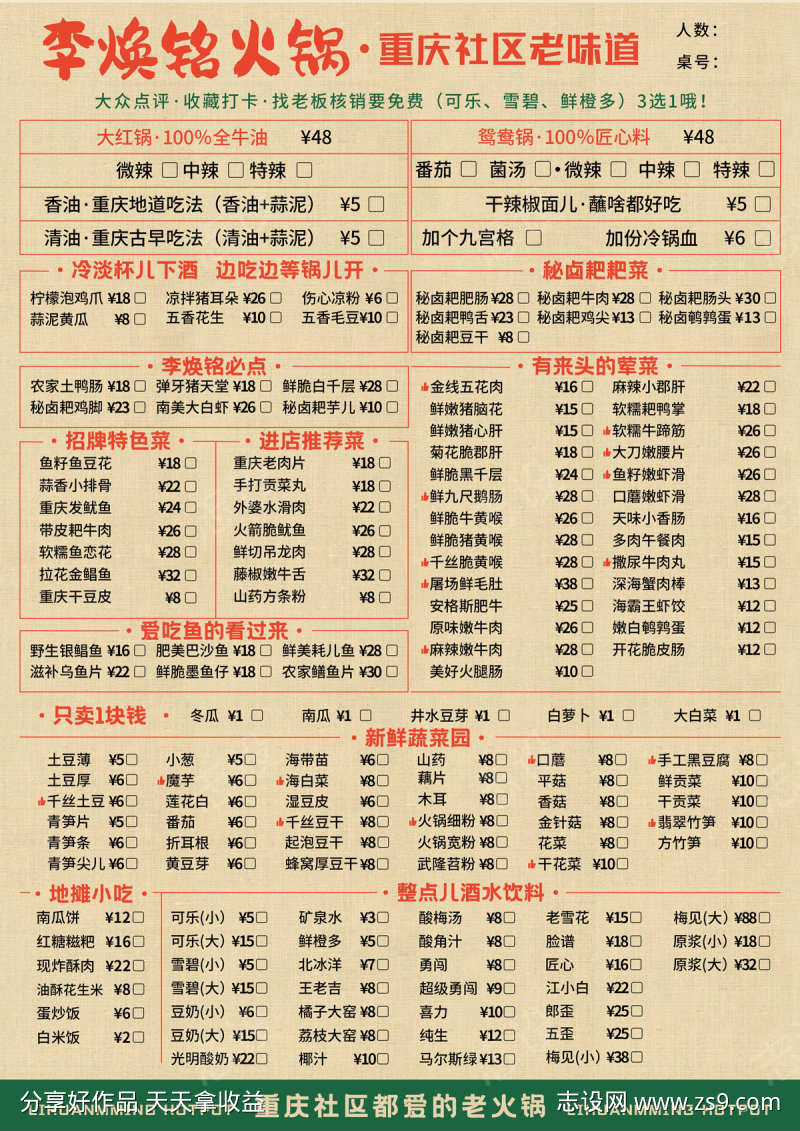 李焕铭火锅·重庆社区老味道
人数：
桌号：
大众点评·收藏打卡·找老板核销要免费（可乐、雪碧、鲜橙多）3选1哦！
大红锅·100%全牛油 ¥48
微辣 中辣 特辣
香油·重庆地道吃法（香油+蒜泥） ¥5
清油·重庆古早吃法（清油+蒜泥） ¥5
鸳鸯锅·100%匠心料 ¥48
番茄 菌汤 ·微辣 中辣 特辣
干辣椒面儿·蘸啥都好吃 ¥5
加个九宫格 加份冷锅血 ¥6
·冷淡杯儿下酒 边吃边等锅儿开·
柠檬泡鸡爪 ¥18 凉拌猪耳朵 ¥26 伤心凉粉 ¥6
蒜泥黄瓜 ¥8 五香花生 ¥10 五香毛豆 ¥10
·秘卤耙耙菜·
秘卤耙肥肠 ¥28 秘卤耙牛肉 ¥28 秘卤耙肠头 ¥30
秘卤耙鸭舌 ¥23 秘卤耙鸡尖 ¥13 秘卤鹌鹑蛋 ¥13
秘卤耙豆干 ¥8
·李焕铭必点·
农家土鸭肠 ¥18 弹牙猪天堂 ¥18 鲜脆白千层 ¥28
秘卤耙鸡脚 ¥23 南美大白虾 ¥26 秘卤耙芋儿 ¥10
·招牌特色菜·
鱼籽鱼豆花 ¥18
蒜香小排骨 ¥22
重庆发鱿鱼 ¥24
带皮耙牛肉 ¥26
软糯鱼恋花 ¥28
拉花金鲳鱼 ¥32
重庆干豆皮 ¥8
·进店推荐菜·
重庆老肉片 ¥18
手打贡菜丸 ¥18
外婆水滑肉 ¥22
火箭脆鱿鱼 ¥26
鲜切吊龙肉 ¥28
藤椒嫩牛舌 ¥32
山药方条粉 ¥8
·爱吃鱼的看过来·
野生银鲳鱼 ¥16 肥美巴沙鱼 ¥18 鲜美耗儿鱼 ¥28
滋补乌鱼片 ¥22 鲜脆墨鱼仔 ¥18 农家鳝鱼片 ¥30
·有来头的荤菜·
金线五花肉 ¥16 麻辣小郡肝 ¥22
鲜嫩猪脑花 ¥15 软糯耙鸭掌 ¥18
鲜嫩猪心肝 ¥15 软糯牛蹄筋 ¥26
菊花脆郡肝 ¥18 大刀嫩腰片 ¥26
鲜脆黑千层 ¥24 鱼籽嫩虾滑 ¥26
鲜九尺鹅肠 ¥28 口蘑嫩虾滑 ¥28
鲜脆牛黄喉 ¥26 天味小香肠 ¥16
鲜脆猪黄喉 ¥28 多肉午餐肉 ¥15
千丝脆黄喉 ¥28 撒尿牛肉丸 ¥15
屠场鲜毛肚 ¥38 深海蟹肉棒 ¥13
安格斯肥牛 ¥25 海霸王虾饺 ¥12
原味嫩牛肉 ¥26 嫩白鹌鹑蛋 ¥12
麻辣嫩牛肉 ¥28 开花脆皮肠 ¥12
美好火腿肠 ¥10
·只卖1块钱· 冬瓜 ¥1 南瓜 ¥1 井水豆芽 ¥1 白萝卜 ¥1 大白菜 ¥1
·新鲜蔬菜园·
土豆薄 ¥5 小葱 ¥5 海带苗 ¥6 山药 ¥8 口蘑 ¥8 手工黑豆腐 ¥8
土豆厚 ¥6 魔芋 ¥6 海白菜 ¥8 藕片 ¥8 平菇 ¥8 鲜贡菜 ¥10
千丝土豆 ¥6 莲花白 ¥6 湿豆皮 ¥6 木耳 ¥8 香菇 ¥8 干贡菜 ¥10
青笋片 ¥5 番茄 ¥6 千丝豆干 ¥8 火锅细粉 ¥8 金针菇 ¥8 翡翠竹笋 ¥10
青笋条 ¥6 折耳根 ¥6 起泡豆干 ¥8 火锅宽粉 ¥8 花菜 ¥8 方竹笋 ¥10
青笋尖儿 ¥6 黄豆芽 ¥6 蜂窝厚豆干 ¥8 武隆苕粉 ¥8 干花菜 ¥10
·地摊小吃·
南瓜饼 ¥12
红糖糍粑 ¥16
现炸酥肉 ¥22
油酥花生米 ¥8
蛋炒饭 ¥6
白米饭 ¥2
·整点儿酒水饮料·
可乐(小) ¥5 矿泉水 ¥3 酸梅汤 ¥8 老雪花 ¥15 梅见(大) ¥88
可乐(大) ¥15 鲜橙多 ¥5 酸角汁 ¥8 脸谱 ¥18 原浆(小) ¥18
雪碧(小) ¥5 北冰洋 ¥7 勇闯 ¥8 匠心 ¥16 原浆(大) ¥32
雪碧(大) ¥15 王老吉 ¥8 超级勇闯 ¥9 江小白 ¥22
豆奶(小) ¥6 橘子大窑 ¥8 喜力 ¥10 郎歪 ¥25
豆奶(大) ¥15 荔枝大窑 ¥8 纯生 ¥12 五歪 ¥25
光明酸奶 ¥22 椰汁 ¥10 马尔斯绿 ¥13 梅见(小) ¥38
分享好作品 天天拿收益
重庆社区都爱的老火锅
志设网 www.zs9.com
LIHUANMMING HOTPOT
LIHUANMMING HOTPOT